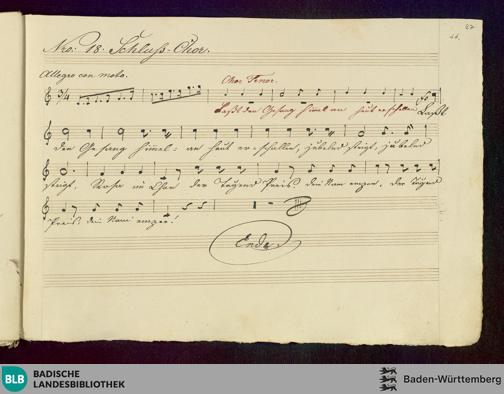 47.
Nro: 18. Schluß-Chor.
Allegro con moto.
Chor Tenor.
Laßt den Gesang himel an heut erschallen Laßt
den Gesang himel: an heut erschallen, jubelnd steigt, jubelnd
steigt, Rosa im Chor der Tugend Preis dein Nam empor, der Tugend
Preis: dein Nam empor!
Ende
BLB BADISCHE
LANDESBIBLIOTHEK
Baden-Württemberg